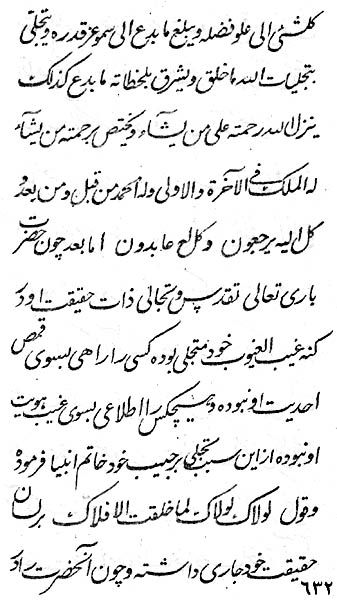 كلشئ الی علو فضله ويبلغ ما بدع الی سمو عز قدره ويتجلی
بتجليات الله ما خلق ويشرق بلحظاته ما بدع كذلك
ينزل الله رحمته علی من يشآء ويختص برحمته من يشآء
له الملك فی الآخرة والاولی وله الحمد من قبل ومن بعد و
كل اليه يرجعون وكل له عابدون اما بعد چون حضرت
باری تعالی تقدس وتجالی ذات حقيقت او در
كنه غيب الغيوب خود متجلی بوده كسی را راهی بسوی قمص
احديت او نبوده وهيچكس را اطلاعی بسوی غيب هويت
او نبوده از اين سبب تجلی بر حبيب خود خاتم انبيا فرموده
وقول لولاك لولاك لما خلقت الافلاك بر لسان
حقيقت خود جاری داشته وچون آنحضرت را در
٦٣٢